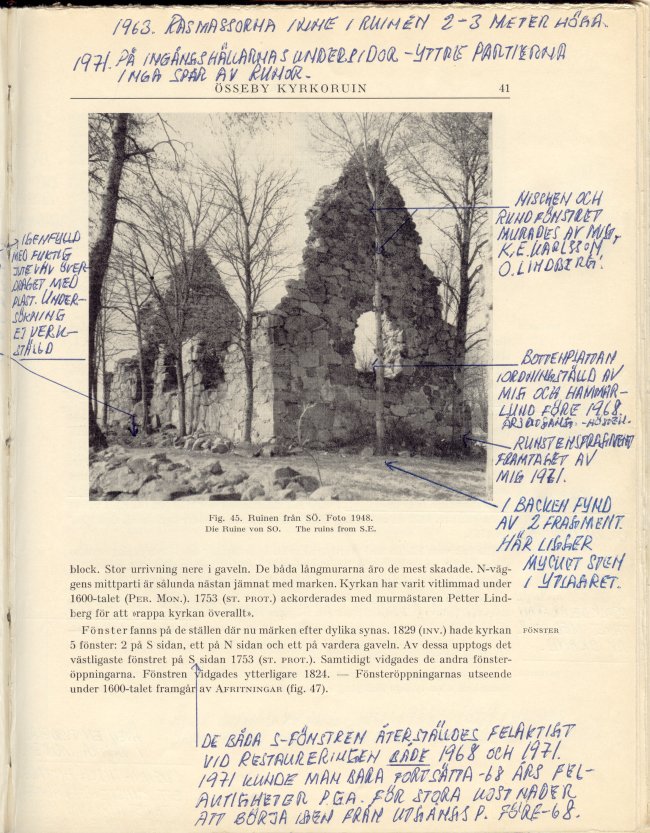 1963. RASMASSORNA INNE I RUINEN 2-3 METER HÖGA.
1971. PÅ INGÅNGSHÄLLARNAS UNDERSIDOR - YTTRE PARTIERNA
INGA SPÅR AV RUNOR.
ÖSSEBY KYRKORUIN 41
NISCHEN OCH
RUNDFÖNSTRET
MURADES AV MIG,
K.E. KARLSSON
O. LINDBERG.
IGENFYLLD
MED FUKTIG
JUTEVÄV ÖVER-
DRAGET MED
PLAST. UNDER-
SÖKNING
EJ VERK-
STÄLLD
BOTTENPLATTAN
IORDNINGSTÄLLD AV
MIG OCH HAMMAR-
LUND FÖRE 1968.
RUNSTENSFRAGMENT
FRAMTAGET AV
MIG 1971.
I BACKEN FYND
AV 2 FRAGMENT.
HÄR LIGGER
MYCKET STEN
I YTLAGRET.
Fig. 45. Ruinen från SÖ. Foto 1948.
Die Ruine von SO. The ruins from S.E.
block. Stor urrivning nere i gaveln. De båda långmurarna äro de mest skadade. N-väg-
gens mittparti är sålunda nästan jämnat med marken. Kyrkan har varit vitlimmad under
1600-talet (PER. MON.). 1753 (ST. PROT.) ackorderades med murmästaren Petter Lind-
berg för att »rappa kyrkan överallt».
Fönster fanns på de ställen där nu märken efter dylika synas. 1829 (INV.) hade kyrkan
FÖNSTER
5 fönster: 2 på S sidan, ett på N sidan och ett på vardera gaveln. Av dessa upptogs det
västligaste fönstret på S sidan 1753 (ST. PROT.). Samtidigt vidgades de andra fönster-
öppningarna. Fönstren vidgades ytterligare 1824. — Fönsteröppningarnas utseende
under 1600-talet framgår av AFRITNINGAR (fig. 47).
DE BÅDA S-FÖNSTREN ÅTERSTÄLLDES FELAKTIGT
VID RESTAURERINGEN BÅDE 1968 OCH 1971.
1971 KUNDE MAN BARA FORTSÄTTA -68 ÅRS FEL-
AKTIGHETER P.G.A. FÖR STORA KOSTNADER
ATT BÖRJA IGEN FRÅN UTGÅNGSP. FÖRE -68.